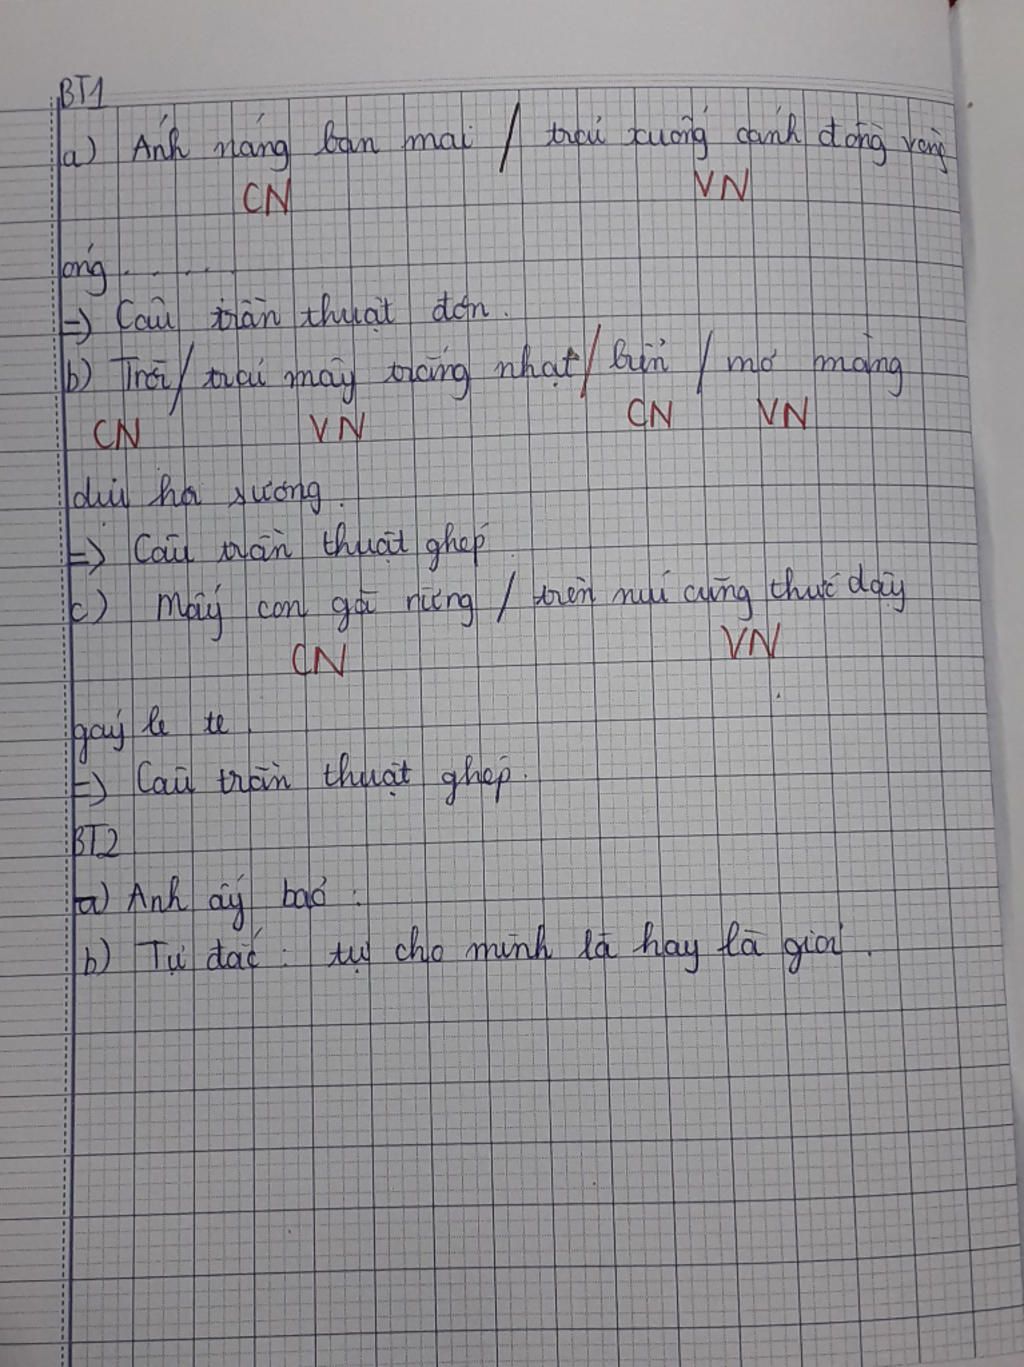 BT1
a) Ánh nắng ban mai / trải xuống cánh đồng vàng
CN VN
óng . . . . .
=> Câu trần thuật đơn.
b) Trời / trải mây trắng nhạt / biển / mơ màng
CN VN CN VN
dịu hơi sương.
=> Câu trần thuật ghép
c) Mấy con gà rừng / trên núi cũng thức dậy
CN VN
gáy le te.
=> Câu trần thuật ghép.
BT2
a) Anh ấy bảo :
b) Tự đắc : tự cho mình là hay là giỏi.